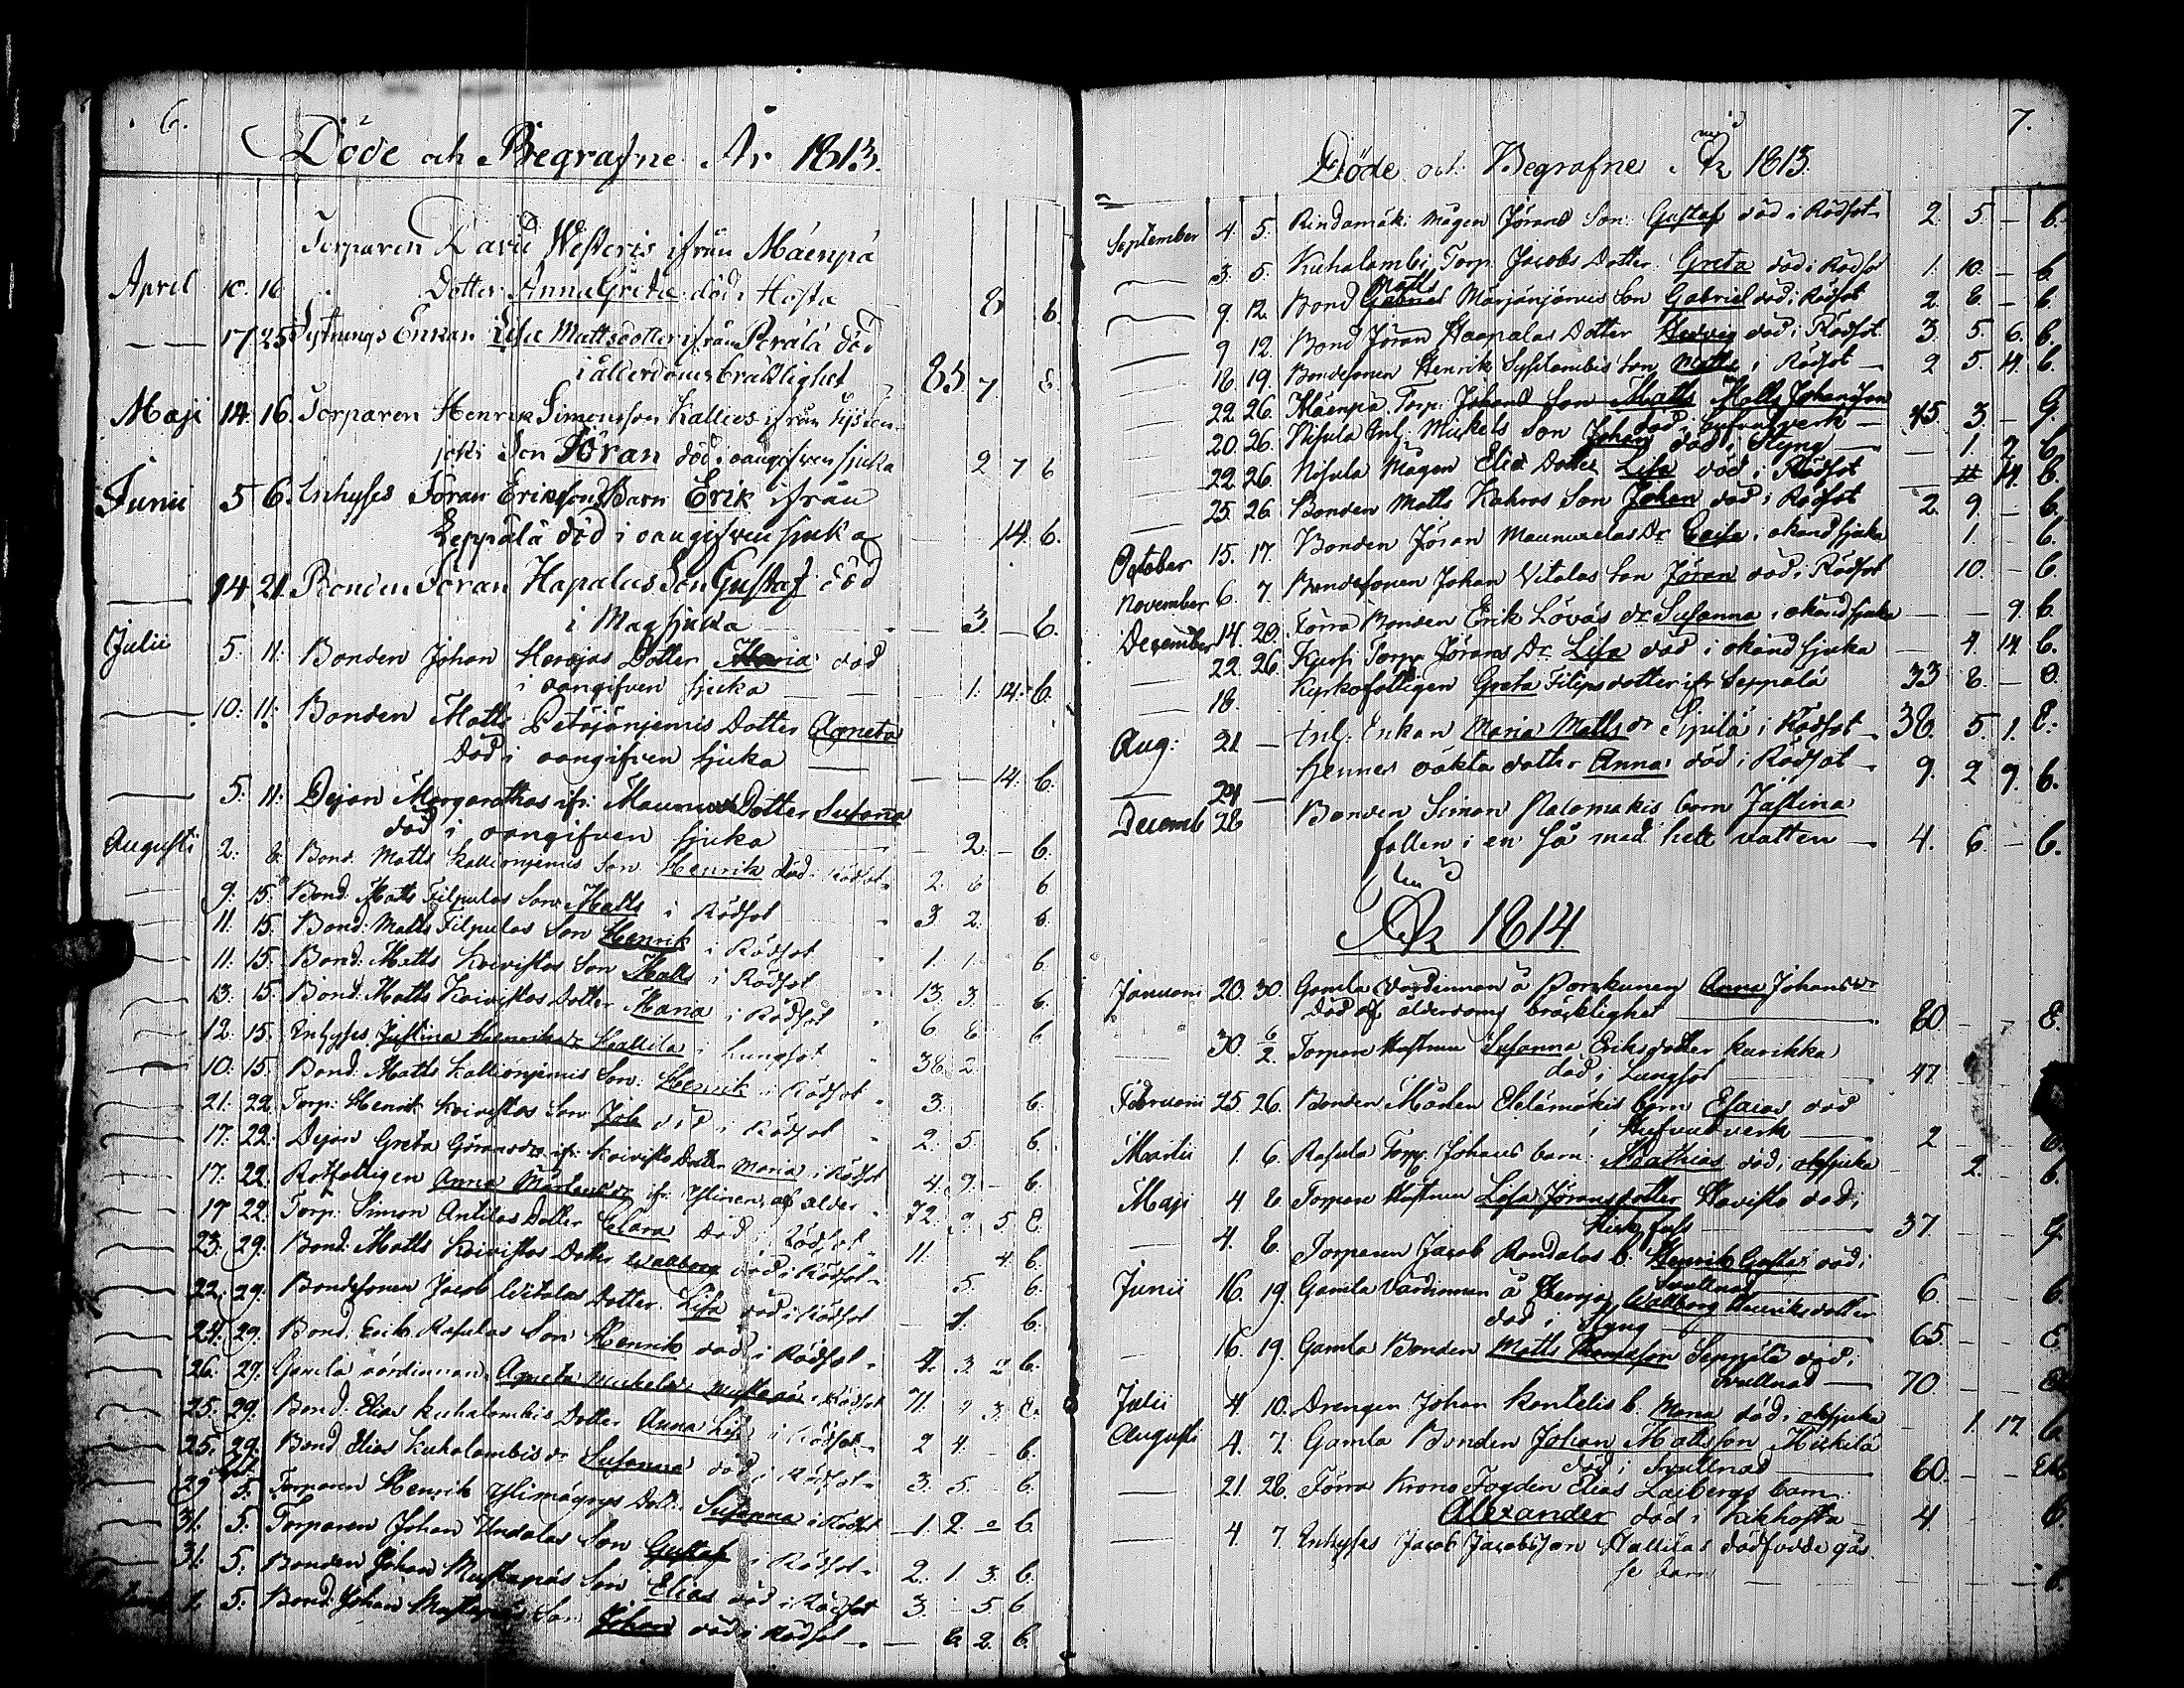 6.
Döde och Begrafne År 1813.
Torparen David Westeris ifrån Mäenpä
April 10 16 Dotter Anna Greta död i Hosta 8 6.
17 25 Sytnings Enkan Lisa Mattsdotter ifrån Perälä död
i ålderdoms bräcklighet 83 7 8
Maji 14. 16. Torparen Henrik Simonsson Kallios ifrån
joki Son Jöran död i oangifven sjuka 2 7 6
Junii 5 6. Inhyses Jöran Eriksson Barn Erik ifrån
Seppälä död i oangifven sjuka 14. 6.
14 21. Bonden Jöran Hapalas Son Gustaf död
i Magsjuka 3. 6.
Julii 5. 11. Bonden Johan Herojas Dotter Maria död
i oangifven sjuka 1. 14. 6.
10. 11. Bonden Matts Petäjänjemis Dotter Agneta
död i oangifven sjuka 14. 6.
5. 11. Dejan Margarethas ifr. Dotter Susana
död i oangifven sjuka 2. 6.
Augusti 2. 8. Bond. Matts Kallionjemis Son Henrik död i Rödsot 2. 6 6.
9. 15. Bond. Matts Filpulas Son Matts i Rödsot 3 2. 6.
11. 15. Bond. Matts Filpulas Son Henrik i Rödsot 1. 1. 6.
11. 15. Bond. Matts Koivistos Son Matts i Rödsot 13. 3. 6.
13. 15. Bond. Matts Koivistos Dotter Maria i Rödsot 6 8 6
12. 15. Inhyses Justina Henriksdr Kallila i Lungsot 38 2
10. 15. Bond. Matts Kallionjemis Son Henrik i Rödsot 3. 6.
21. 22. Torp. Henrik Koivistos Son Job död i Rödsot 2. 5. 6.
17. 22. Dejan Greta Göransdr ifr. Koivisto Dotter Maria i Rödsot 4. 9. 6.
17. 22. Rotfattigen Anna Mårtensdr ifr. af ålder 72. 9. 5 8.
19 22. Torp. Simon Antilas Dotter Clara död i Rödsot 11. 4 6.
23. 29. Bond. Matts Koivistos Dotter Wallborg död i Rödsot 5. 6.
22. 29. Bondesonen Jacob Witalas Dotter Lisa död i Rödsot 7. 6.
24. 29. Bond. Erik Rasulas Son Henrik död i Rödsot 4. 3 2 6.
26. 29. Gamla värdinnan Agneta Mickelsdr Mustapää i Rödsot 71. 9 3. 8.
25. 29. Bond. Elias Kuhalambis Dotter Anna Lisa i Rödsot 2 4. 6.
25. 29. Bond. Elias Kuhalambis dr Susanna död i Rödsot 3. 5. 6.
29 5. Torparen Henrik Dott. Susanna i Rödsot 1. 2. 6.
31. 5. Torparen Johan Undalas Son Gustaf i Rödsot 2. 1. 3. 6.
31. 5. Bonden Johan Mustapääs Son Elias död i Rödsot 3. 5. 6
1. 5. Bond. Johan Mustapääs Son Johan död i Rödsot 6. 2. 6.
7.
Döde och Begrafne År 1813.
September 4. 5. Rindamäki Mågen Jörans Son Gustaf död i Rödsot 2. 5 6.
3. 5. Kuhalambi Torp. Jacobs Dotter Greta död i Rödsot 1. 10. 6
9. 12. Bond Matts Märjänjärvis Son Gabriel död i Rödsot 2. 8. 6
9 12. Bond Jöran Haapalas Dotter Hedvig död i Rödsot 3. 5. 6. 6.
18. 19. Bondesonen Henrik Syssilambis Son Matts i Rödsot 2 5. 14. 6.
22. 26. Mäenpä Torp. Johans Son Matts Matts Johansson
död i hufvudverk 45 3 9.
20. 26. Nisula Inh. Mickels Son Johan död i Styng 1. 2 6
22. 26. Nisula Mågen Elias Dotter Lisa död i Rödsot 11 14. 6.
25. 26. Bonden Matts Kahras Son Johan död i Rödsot 2 9. 6.
October 15. 17. Bonden Jöran Maunuxelas Dr Caisa i okänd sjuka 1. 6.
November 6. 7. Bondesonen Johan Vitalas Son Jöran död i Rödsot 10. 6.
December 14. 20. Förra Bonden Erik Lövås dr Susanna i okänd sjuka 9. 6.
22. 26. Torpr Jörans Dr Lisa död i okänd sjuka 4. 14. 6.
18. Kyrkofattigen Greta Filipsdotter ifr. Seppälä 33 8. 8.
Aug. 21 Inh. Enkan Maria Mattsdr Sipilä i Rödsot 38. 5. 1. 8.
24 hennes oäkta dotter Anna död i Rödsot 9. 2 9. 6.
Decemb 28 Bonden Simon Palomäkis barn Justina
fallen i en Så med hett vatten 4. 6. 6.
År 1814
Januarii 20. 30. Gamla Värdinnan å Porskunen Anna Johansdr
död af ålderdoms bräcklighet 80 8.
30. 6/2. Torpare Hustrun Susanna Eriksdotter Kurikka
död i Lungsot 47.
Februarii 25. 26. Bonden Mårten Eteläma͏̈kis barn Esaias död
i Hufvudverk 2 6.
Martii 1. 6. Rasula Torpr Johans barn Mathias död i okg sjuka 2. 6.
Maji 4 8. Torpare Hustrun Lisa Jöransdotter Koivisto död i
37. 9.
4. 8. Torparen Jacob Rondalas b. Henrik Gustaf död i
Svullnad 6. 6.
Junii 16. 19. Gamla Värdinnan å Heroja Wallborg Henriksdotter
död i Styng 65. 8.
16. 19. Gamla Bonden Matts Thomasson Seppälä död i
Svullnad 70. 8.
Julii 4. 10. Drengen Johan Kantelis b. Maria död i okg sjuka 1. 17 6.
Augusti 4. 7. Gamla Bonden Johan Mattsson Mickilä
död i Svullnad 60.
21. 28. Förra Krono Fogden Elias Laibergs barn
Alexander död i Kikhosta 4. 6.
4. 7. Inhyses Jacob Jacobsson Kallilas dödfödde gås
se barn 6.